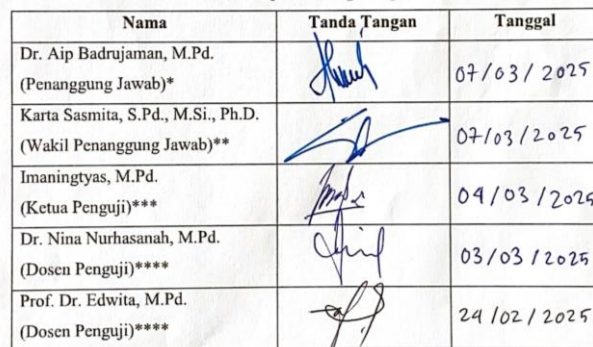 Nama Tanda Tangan Tanggal
Dr. Aip Badrujaman, M.Pd.
(Penanggung Jawab)* 07/03/2025
Karta Sasmita, S.Pd., M.Si., Ph.D.
(Wakil Penanggung Jawab)** 07/03/2025
Imaningtyas, M.Pd.
(Ketua Penguji)*** 04/03/2025
Dr. Nina Nurhasanah, M.Pd.
(Dosen Penguji)**** 03/03/2025
Prof. Dr. Edwita, M.Pd.
(Dosen Penguji)**** 24/02/2025